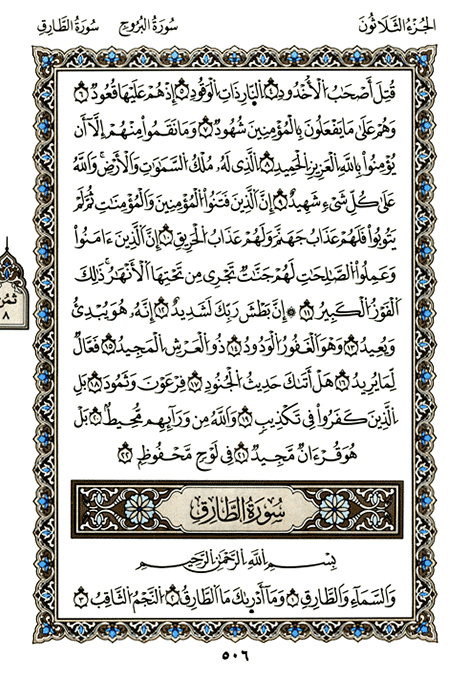 الجُزْءُ الثَّلَاثُونَ سُورَةُ البُرُوجِ سُورَةُ الطَّارِقِ
قُتِلَ أَصْحَٰبُ الْأُخْدُودِ ٤ النَّارِ ذَاتِ الْوَقُودِ ٥ إِذْ هُمْ عَلَيْهَا قُعُودٌ ٦
وَهُمْ عَلَىٰ مَا يَفْعَلُونَ بِالْمُؤْمِنِينَ شُهُودٌ ٧ وَمَا نَقَمُوا مِنْهُمْ إِلَّا أَن
يُؤْمِنُوا بِاللَّهِ الْعَزِيزِ الْحَمِيدِ ٨ الَّذِي لَهُ مُلْكُ السَّمَٰوَٰتِ وَالْأَرْضِ وَاللَّهُ
عَلَىٰ كُلِّ شَيْءٍ شَهِيدٌ ٩ إِنَّ الَّذِينَ فَتَنُوا الْمُؤْمِنِينَ وَالْمُؤْمِنَٰتِ ثُمَّ لَمْ
يَتُوبُوا فَلَهُمْ عَذَابُ جَهَنَّمَ وَلَهُمْ عَذَابُ الْحَرِيقِ ١٠ إِنَّ الَّذِينَ ءَامَنُوا
وَعَمِلُوا الصَّٰلِحَٰتِ لَهُمْ جَنَّٰتٌ تَجْرِي مِن تَحْتِهَا الْأَنْهَٰرُ ذَٰلِكَ
الْفَوْزُ الْكَبِيرُ ١١ ۞ إِنَّ بَطْشَ رَبِّكَ لَشَدِيدٌ ١٢ إِنَّهُ هُوَ يُبْدِئُ
وَيُعِيدُ ١٣ وَهُوَ الْغَفُورُ الْوَدُودُ ١٤ ذُو الْعَرْشِ الْمَجِيدُ ١٥ فَعَّالٌ
لِّمَا يُرِيدُ ١٦ هَلْ أَتَىٰكَ حَدِيثُ الْجُنُودِ ١٧ فِرْعَوْنَ وَثَمُودَ ١٨ بَلِ
الَّذِينَ كَفَرُوا فِي تَكْذِيبٍ ١٩ وَاللَّهُ مِن وَرَآئِهِم مُّحِيطٌ ٢٠ بَلْ
هُوَ قُرْءَانٌ مَّجِيدٌ ٢١ فِي لَوْحٍ مَّحْفُوظٍ ٢٢
ثُمُن
٨
سُورَةُ الطَّارِقِ
بِسْمِ اللَّهِ الرَّحْمَٰنِ الرَّحِيمِ
وَالسَّمَآءِ وَالطَّارِقِ ١ وَمَآ أَدْرَىٰكَ مَا الطَّارِقُ ٢ النَّجْمُ الثَّاقِبُ ٣
٥٠٦